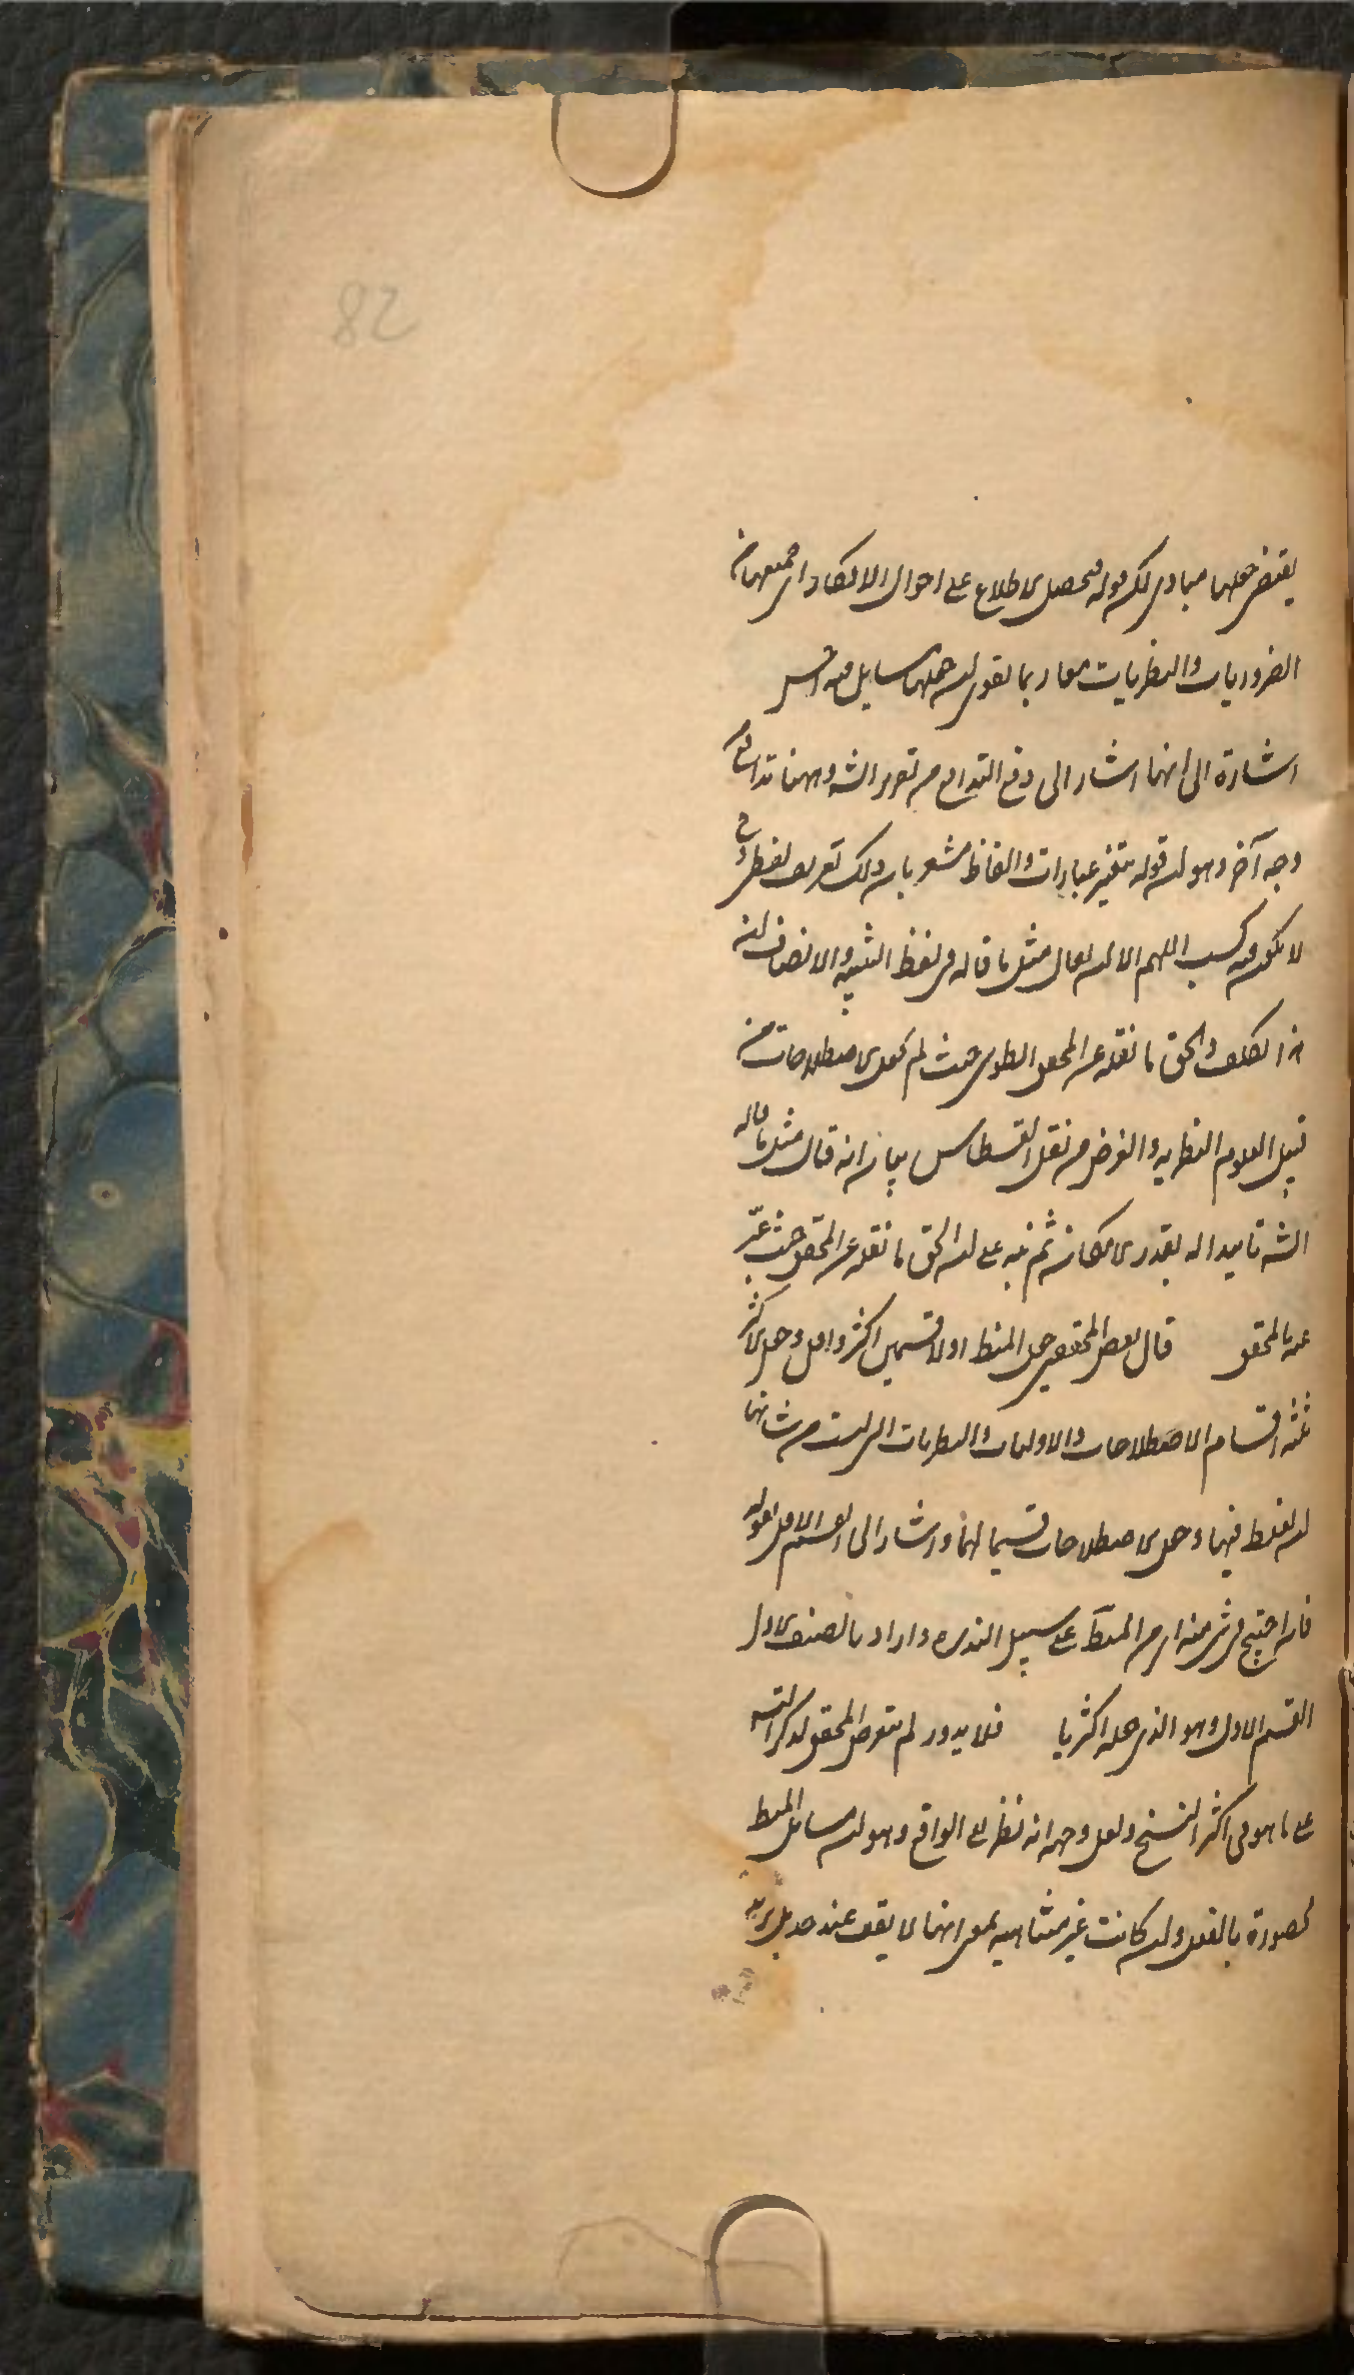 82
يقتضى جعلها مبادى لكن قوله فحصل الاطلاع على احوال الافكار اى جميعها من
الضروريات والنظريات معا ربما يقوى ان جملها مسايل
اشارة الى انهما اشار الى دفع التدافع من تقرير الشه وههنا تدافع
وجه آخر وهو ان قوله بتغير عبارات والفاظ مشعر بان ذلك تعريف لفظى
لا يكون فيه كسب اللهم الا ان يقال مثل ما قاله فى لفظ التنبيه والانصاف ان
هذا تكلف والحق ما نقله عن المحقق الطوسى حيث لم يجعل الاصطلاحات من
قبيل العلوم النظريه والغرض من نقل القسطاس بيان انه قال مثل ما قاله
الشه تاييدا له بقدر الامكان ثم نبه على ان الحق ما نقله عن المحقق حيث عبر
عنه بالمحقق قال بعض المحققين جعل المنطق اولا قسمين اكثر واقل وجعل الاكثر
ثلثه اقسام الاصطلاحات والاوليات والنظريات التى ليست من شانها
ان يغلط فيها وجعل الاصطلاحات قسيما لهما واشار الى القسم الاقل بقوله
فان احتيج فى شئ منه اى من المنطق على سبيل الندره واراد بالصنف الاول
القسم الاول وهو الذى جعله اكثريا فلا يدور لم يتعرض المحقق لذكر التسه
على ما هو فى اكثر النسخ ولعل وجهه انه نظر الى الواقع وهو ان مسائل المنطق
محصورة بالفعل وان كانت غير متناهيه بمعنى انها لا يقف عند حد بل